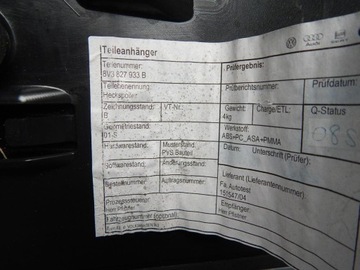 Teileanhänger
Teilenummer:
8V3 827 933 B
Prüfergebnis:
Teilebenennung:
Heckspoiler
Prüfberichtsnummer:
Prüfdatum:
Zeichnungsstand:
B
VT-Nr.
Gewicht:
4kg
Charge/ETL.
Q-Status
Geometriestand:
01-S
Werkstoff:
ABS+PC_ASA+PMMA
Hardwarestand:
Musterstand:
PVS Bauteil
Datum:
Unterschrift (Prüfer):
Softwarestand:
Änderungsstand:
Lieferant (Lieferantennummer):
Fa. Autotest
15/547/04
Auftragsnummer:
Prozesssteuerer:
Herr Pfisterer
Empfänger:
Herr Pfisterer
Fahrzeugnummer (optional):